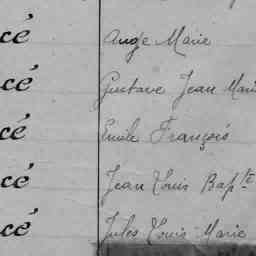 cé Ange Marie
cé Gustave Jean Marie
cé Emile François
cé Jean Louis Bapte
cé Jules Louis Marie